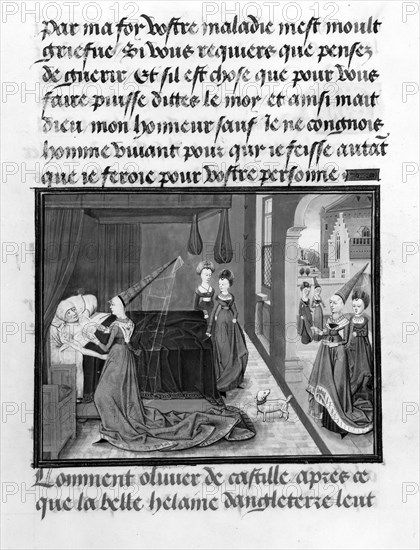 Par ma foy vostre maladie mest moult
griefue Si vous requiers que pensez
de guerir Et sil est chose que pour vous
faire puisse dittes le moy et ainsi mait
dieu mon honneur sauf Je ne congnois
homme viuant pour qui ie feisse autãt
que ie feroie pour vostre personne
Comment oliuier de castille apres ce
que la belle helaine dangleterre leut